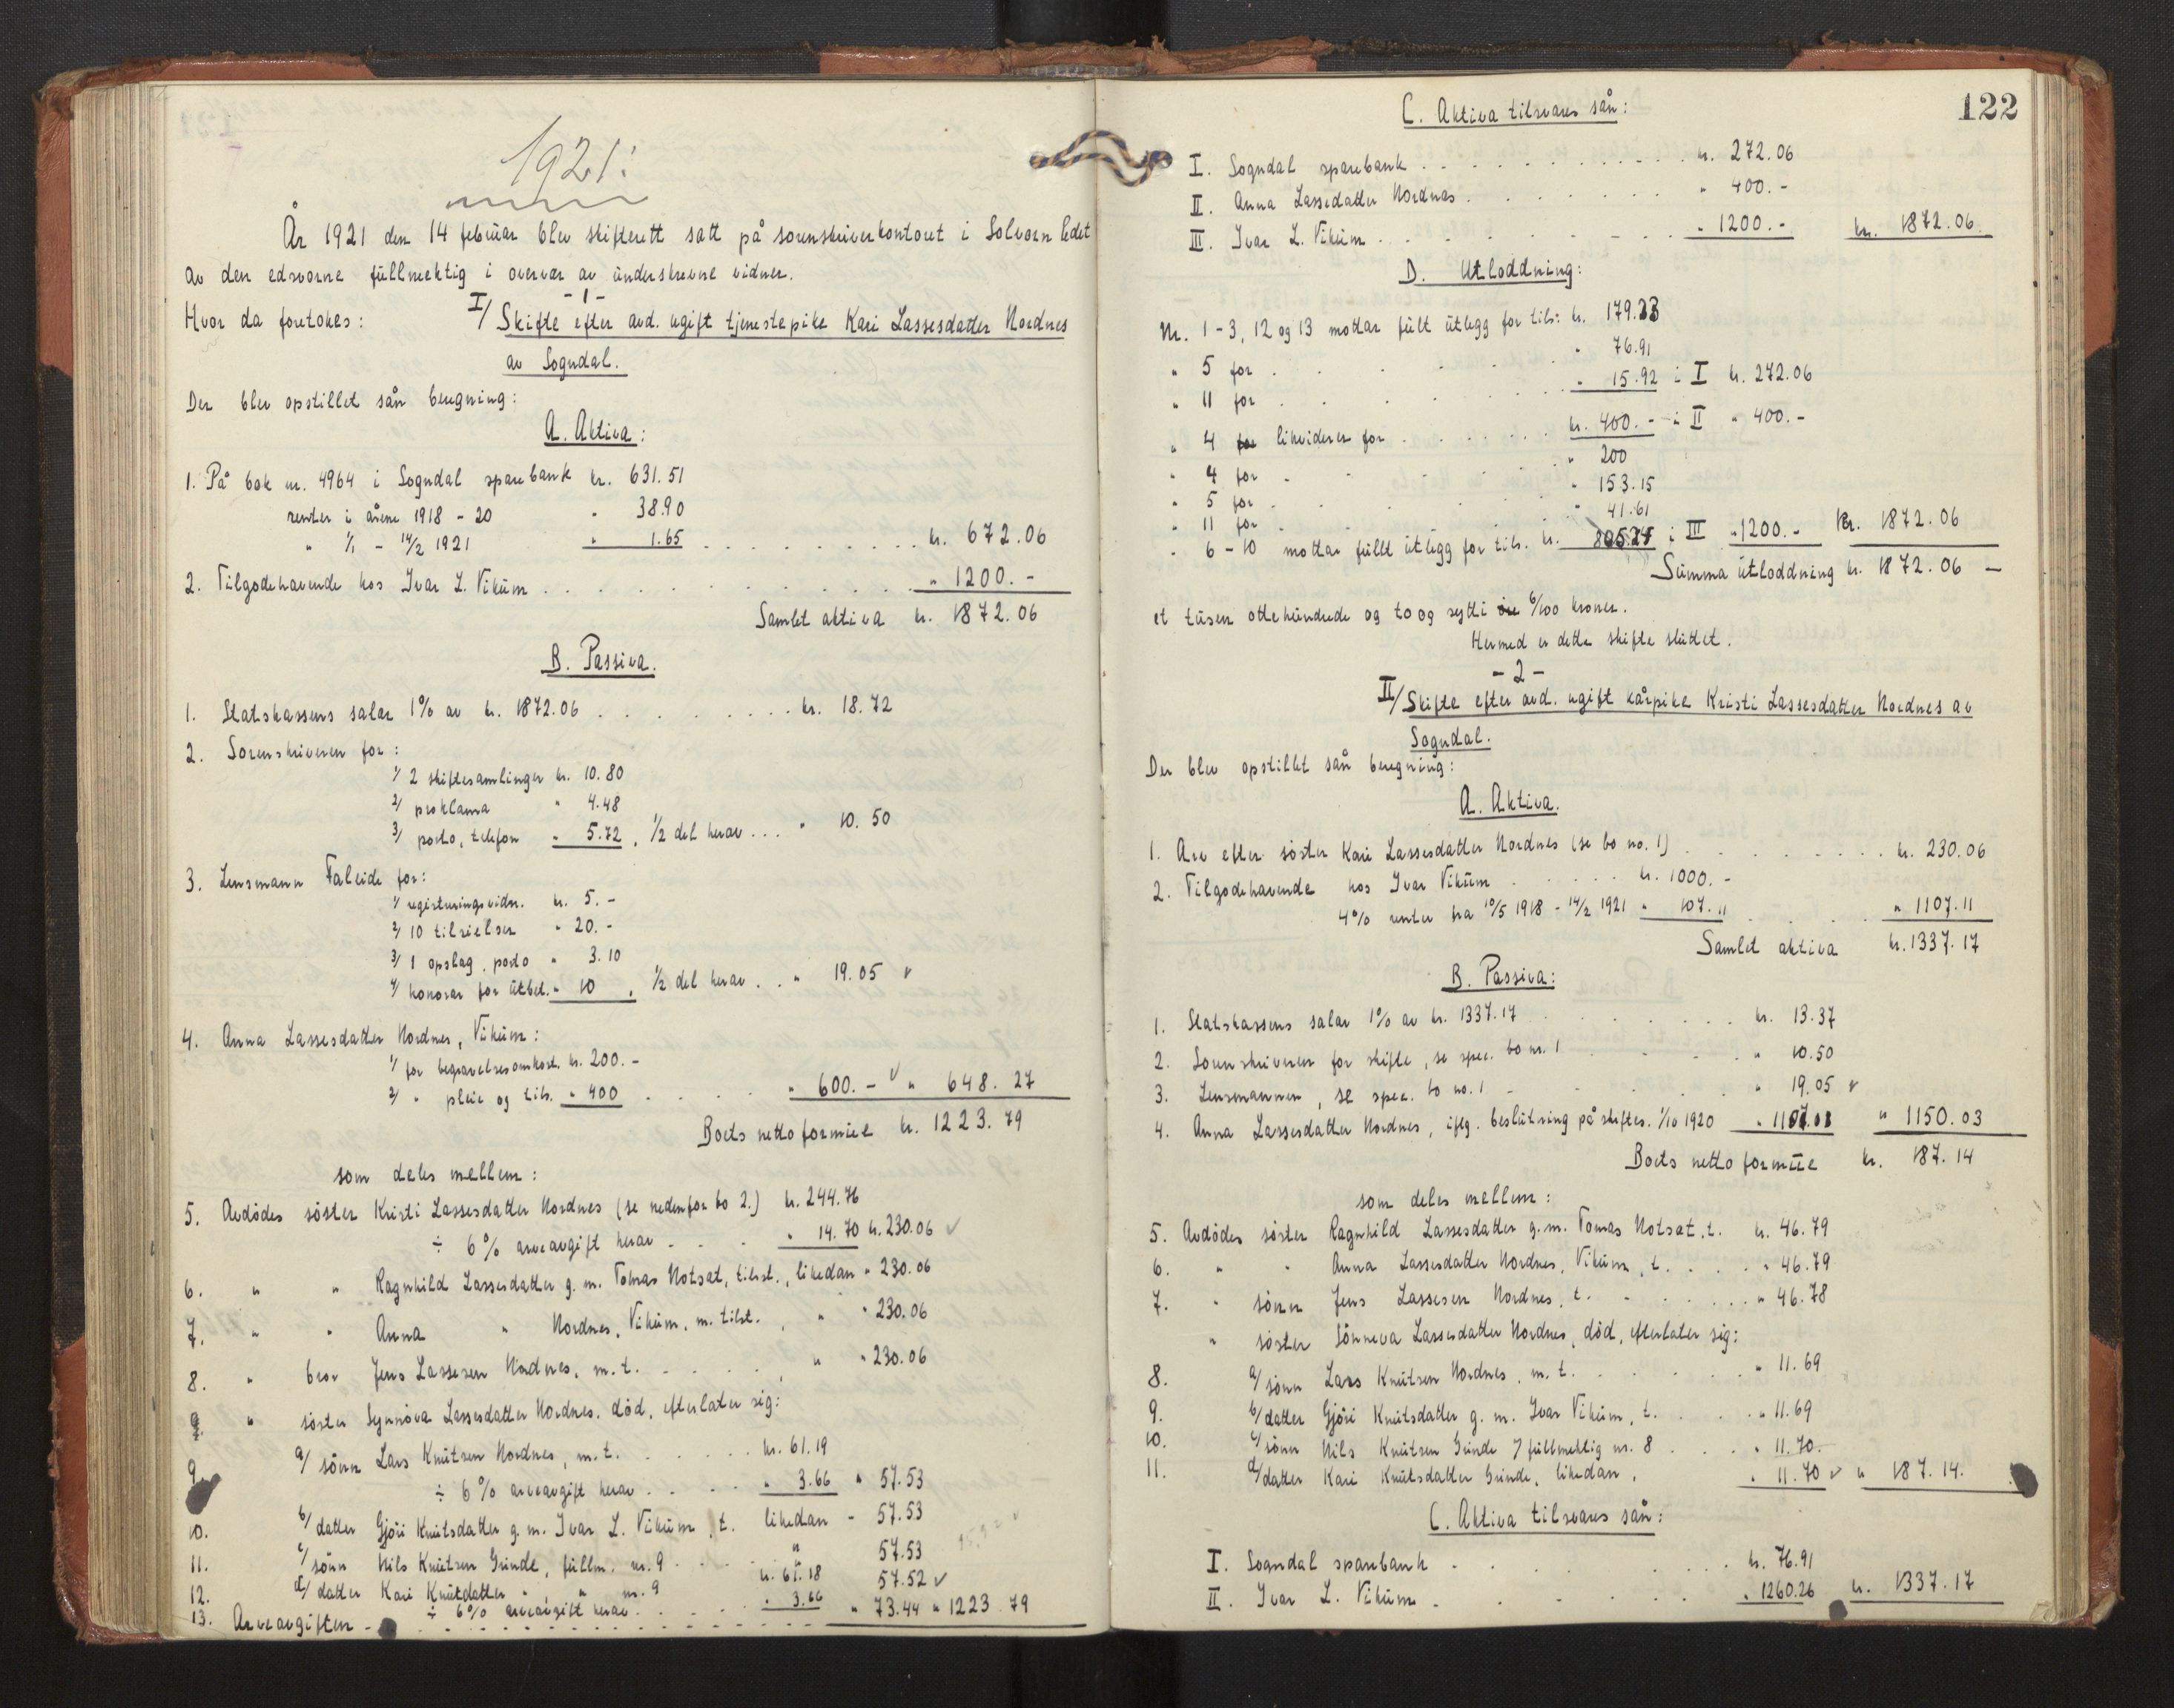 1921.
År 1921 den 14 februar blev skifterett satt på sorenskriverkontoret i Solvorn ledet
av den edsvorne fullmektig i overvær av underskrevne vidner.
- 1 -
Hvor da foretokes: I/ Skifte efter avd. ugift tjenestepike Kari Lassesdatter Nordnes
av Sogndal.
Der blev opstillet sån beregning:
A. Aktiva:
1. På bok nr. 4964 i Sogndal sparebank kr. 631.51
renter i årene 1918 - 20 " 38.90
" 1/1 - 14/2 1921 " 1.65 . . . kr. 672.06
2. Tilgodehavende hos Ivar L. Vikum . . . " 1200.-
Samlet aktiva kr. 1872.06
B. Passiva.
1. Statskassens salær 1% av kr. 1872.06 . . . kr. 18.72
2. Sorenskriveren for:
1/ 2 skiftesamlinger kr. 10.80
2/ proklama " 4.48
3/ porto, telefon " 5.72, 1/2 del herav . . . " 10.50
3. Lensmann Faleide for:
1/ registreringsvidn. kr. 5.-
2/ 10 tilsielser " 20.-
3/ 1 opslag, porto " 3.10
4/ honorar for utbet. " 10, 1/2 del herav . . " 19.05 v
4. Anna Lassesdatter Nordnes, Vikum:
1/ for begravelsesomkost. kr. 200.-
2/ " pleie og tils. " 400 . . . . " 600.- v " 648.27
Boets netto formue kr. 1223.79
som deles mellem:
5. Avdödes söster Kristi Lassesdatter Nordnes (se nedenfor bo 2.) kr. 244.76
÷ 6% arveavgift herav . . . " 14.70 kr. 230.06 v
6. " " Ragnhild Lassesdatter g. m. Tomas Notsæt, tilst., likedan " 230.06
7. " " Anna " Nordnes, Vikum, m. tilst. , " " 230.06
8. " bror Jens Lassesen Nordnes, m. t. . . . . , " " 230.06
" söster Synnöva Lassesdatter Nordnes, död, efterlater sig:
9. a/ sönn Lars Knutsen Nordnes, m. t. . . . . kr. 61.19
÷ 6% arveavgift herav . . . . " 3.66 " 57.53
10. b/ datter Gjöri Knutsdatter g. m. Ivar L. Vikum, t. likedan - 57.53
11. c/ sönn Nils Knutsen Grinde, fullm. nr. 9 . . . . " 57.53
12. d/ datter Kari Knutsdatter " " nr. 9 kr. 61.18 57.52 v
÷ 6% arveavgift herav . . . . " 3.66
13. Arveavgiften - . . . . " 73.44 " 1223.79
122
C. Aktiva tilsvares sån:
I. Sogndal sparebank . . . . kr. 272.06
II. Anna Lassesdatter Nordnes . . . . " 400.-
III. Ivar L. Vikum . . . . " 1200.- kr. 1872.06.
D. Utloddning:
Nr. 1-3, 12 og 13 mottar fullt utlegg for tils: kr. 179.23
" 5 for . . . . " 76.91
" 11 for . . . . " 15.92 i I kr. 272.06
" 4 for likviderer for . . . . kr. 400.- i II " 400.-
" 4 for . . . . " 200
" 5 for . . . . " 153.15
" 11 for . . . . " 41.61
" 6-10 mottar fullt utlegg for tils. kr. 805.24 i III " 1200.- kr. 1872.06
Summa utloddning kr. 1872.06 —
et tusen ottehundrede og to og sytti 6/100 kroner.
Hermed er dette skifte sluttet.
- 2 -
II/ Skifte efter avd. ugift kårpike Kristi Lassesdatter Nordnes av
Sogndal.
Der blev opstillet sån beregning:
A. Aktiva.
1. Arv efter söster Kari Lassesdatter Nordnes (se bo no. 1) . . . . kr. 230.06
2. Tilgodehavende hos Ivar Vikum . . . . kr. 1000.-
4% renter fra 10/5 1918 - 14/2 1921 " 107.11 . . . . " 1107.11
Samlet aktiva kr. 1337.17
B. Passiva:
1. Statskassens salær 1% av kr. 1337.17 . . . . kr. 13.37
2. Sorenskriveren for skifte, se spec. bo nr. 1 . . . . " 10.50
3. Lensmannen, se spec. bo no. 1 - . . . . " 19.05 v
4. Anna Lassesdatter Nordnes, iflg. beslutning på skiftes. 1/10 1920 " 1107.11 " 1150.03
Boets netto formue kr. 187.14
som deles mellem:
5. Avdödes söster Ragnhild Lassesdatter g. m. Tomas Notsæt, t. kr. 46.79
6. " " Anna Lassesdatter Nordnes, Vikum, t. . . . " 46.79
7. " sönn Jens Lassesen Nordnes, t. . . . . " 46.78
" söster Sönneva Lassesdatter Nordnes, död, efterlater sig:
8. a/ sönn Lars Knutsen Nordnes, m. t. . . . . " 11.69
9. b/ datter Gjöri Knutsdatter g. m. Ivar Vikum, t. . . . " 11.69
10. c/ sönn Nils Knutsen Grinde 7 fullmektig nr. 8 . . . " 11.70.-
11. d/ datter Kari Knutsdatter Grinde, likedan, " 11.70 v " 187.14.
C. Aktiva tilsvares sån:
I. Sogndal sparebank - . . . . kr. 76.91
II. Ivar L. Vikum . . . . " 1260.26 kr. 1337.17